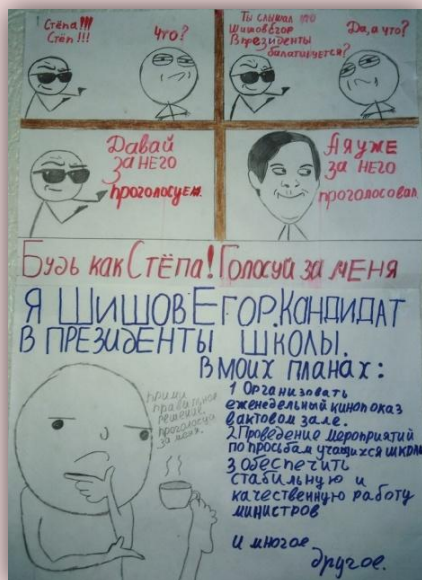 Стёпа!!!
Стёп!!!
Что?
Ты слышал что
Шишов Егор
В президенты
балатируется?
Да, а что?
Давай
за него
проголосуем.
А я уже
за него
проголосовал.
Будь как Стёпа! Голосуй за меня
Я Шишов Егор. Кандидат
в президенты школы.
В моих планах:
1 Организовать
еженедельный кинопоказ
в актовом зале.
2. Проведение мероприятий
по просьбам учащихся школы
3 Обеспечить
стабильную и
качественную работу
министров
и многое
другое.
Прими
правильное
решение.
проголосуй
за меня.